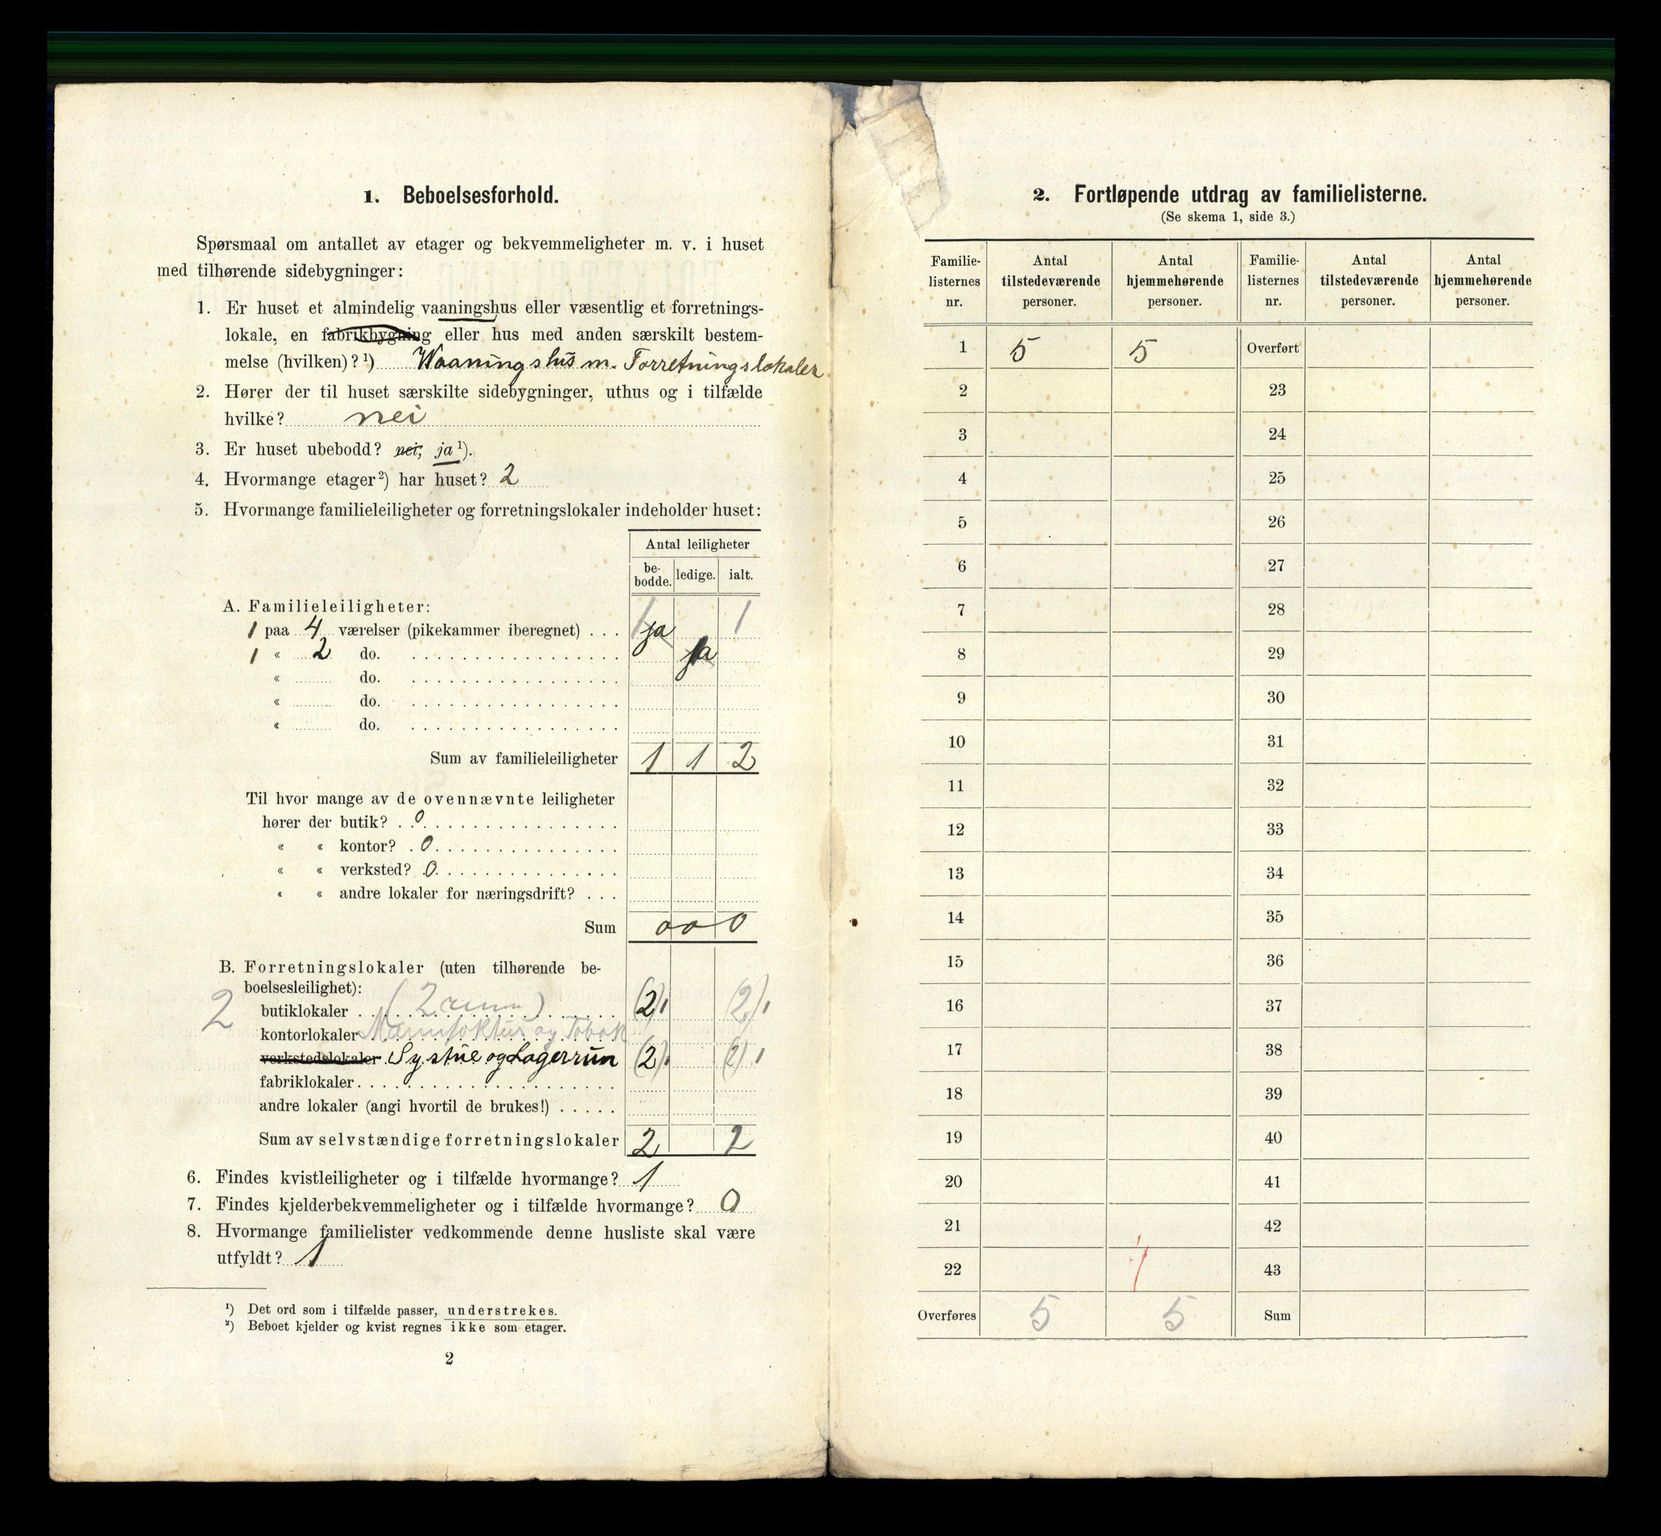 1. Beboelsesforhold.
Spørsmaal om antallet av etager og bekvemmeligheter m. v. i huset
med tilhørende sidebygninger:
1. Er huset et almindelig vaaningshus eller væsentlig et forretnings-
lokale, en fabrikbygning eller hus med anden særskilt bestem-
melse (hvilken)? ¹) Waaningshus m. Forretningslokaler
2. Hører der til huset særskilte sidebygninger, uthus og i tilfælde
hvilke? nei
3. Er huset ubebodd? nei, ja ¹).
4. Hvormange etager ²) har huset? 2
5. Hvormange familieleiligheter og forretningslokaler indeholder huset:
Antal leiligheter
be-bodde. ledige. ialt.
A. Familieleiligheter:
1 paa 4 værelser (pikekammer iberegnet) . . . 1 ja 1
1 « 2 do. ja
« do.
« do.
« do.
Sum av familieleiligheter 1 1 2
Til hvor mange av de ovennævnte leiligheter
hører der butik? 0
« « kontor? 0
« « verksted? 0
« « andre lokaler for næringsdrift? . . .
Sum 0 0 0
B. Forretningslokaler (uten tilhørende be-
boelsesleilighet):
2 butiklokaler (2 rum) (2) 1 (2) 1
kontorlokaler Manufaktur og Tobak
verkstedslokaler Systue og Lagerrum (2) 1 (2) 1
fabriklokaler
andre lokaler (angi hvortil de brukes!) . . . . .
Sum av selvstændige forretningslokaler 2 2
6. Findes kvistleiligheter og i tilfælde hvormange? 1
7. Findes kjelderbekvemmeligheter og i tilfælde hvormange? 0
8. Hvormange familielister vedkommende denne husliste skal være
utfyldt? 1
¹) Det ord som i tilfælde passer, understrekes.
²) Beboet kjelder og kvist regnes ikke som etager.
2
2. Fortløpende utdrag av familielisterne.
(Se skema 1, side 3.)
Familie-listernes nr. Antal tilstedeværende personer. Antal hjemmehørende personer. Familie-listernes nr. Antal tilstedeværende personer. Antal hjemmehørende personer.
1 5 5 Overført
2 23
3 24
4 25
5 26
6 27
7 28
8 29
9 30
10 31
11 32
12 33
13 34
14 35
15 36
16 37
17 38
18 39
19 40
20 41
21 42
22 43
Overføres 5 5 Sum